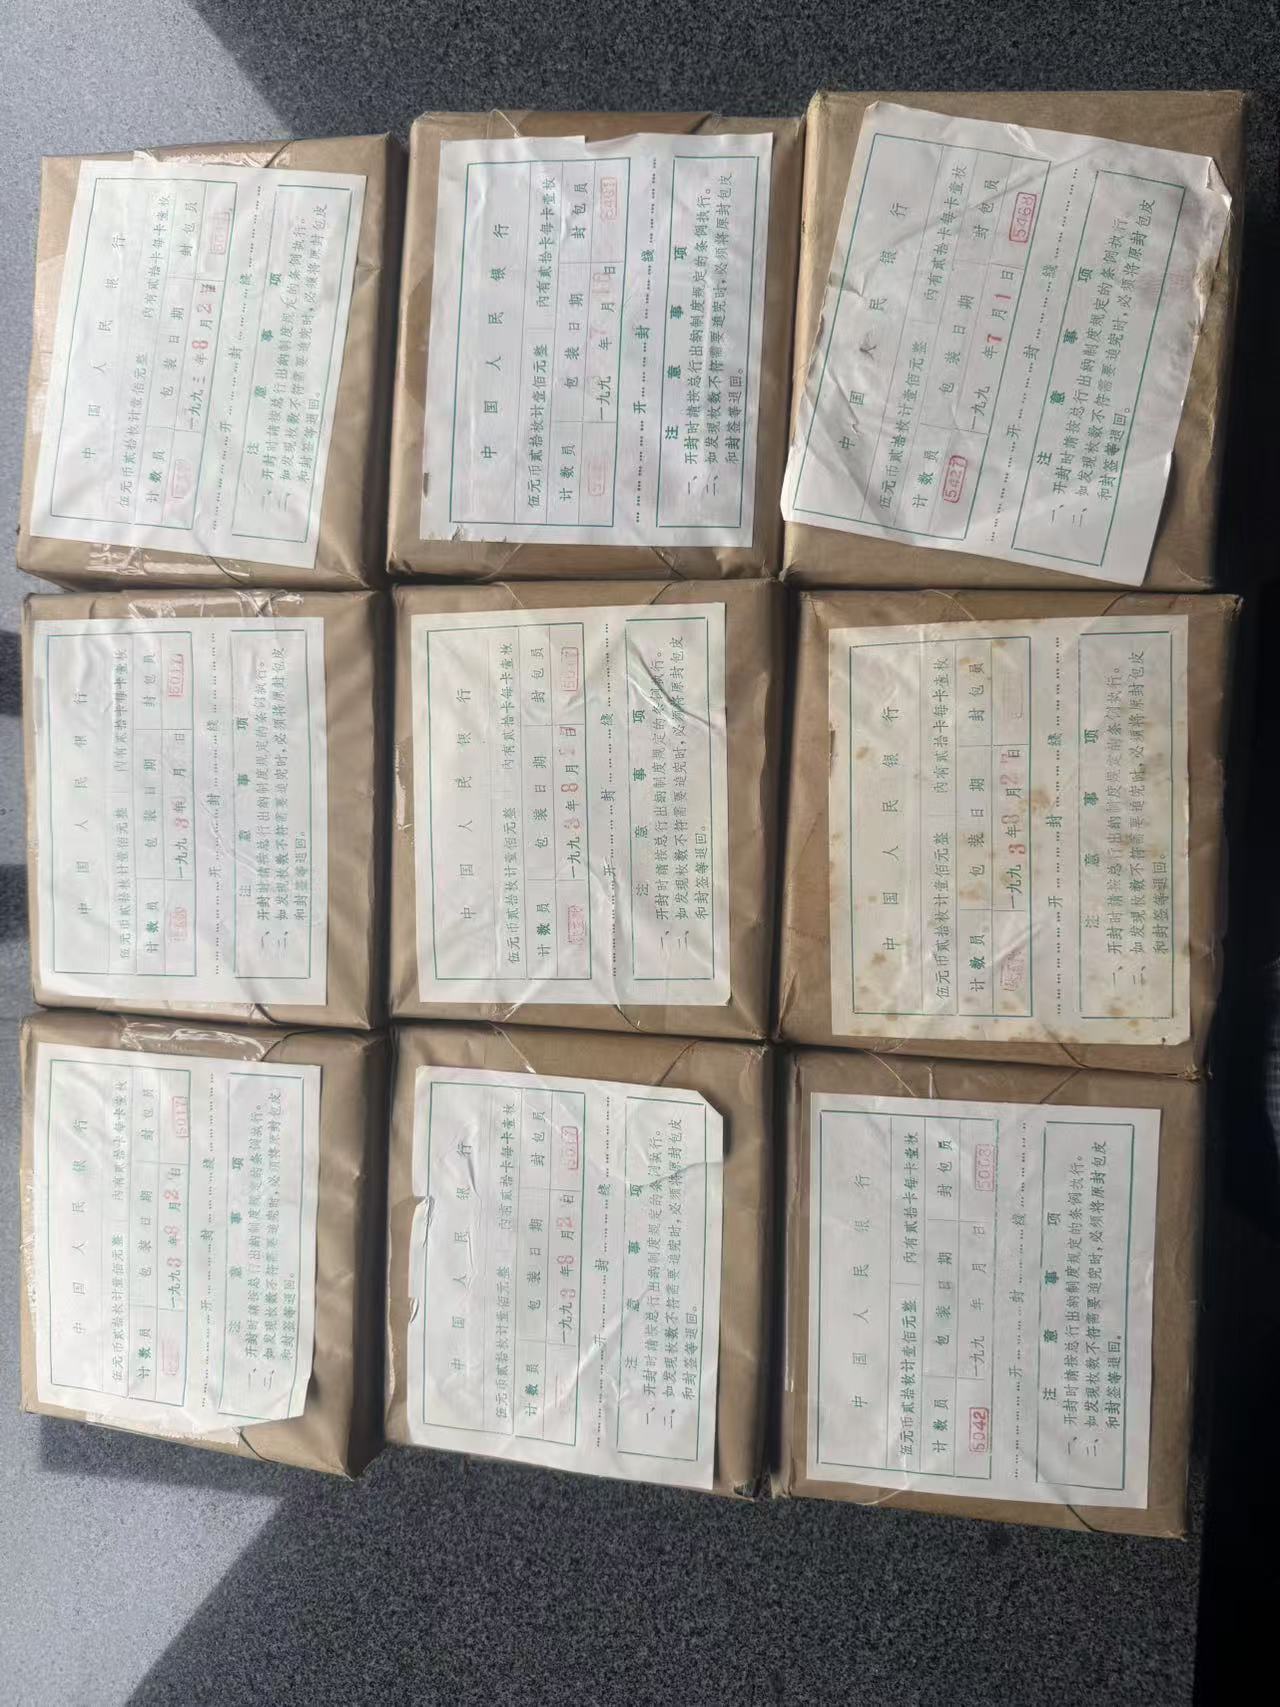 中国人民银行
伍元币贰拾枚计壹佰元整 内有贰拾卡每卡壹枚
计数员 包装日期 封包员
一九九三年8月2日
开封线
注意事项
一、开封时请按总行出纳制度规定的条例执行。
二、如发现枚数不符需要追究时,必须将原封包皮
和封签等退回。
中国人民银行
伍元币贰拾枚计壹佰元整 内有贰拾卡每卡壹枚
计数员 包装日期 封包员
一九九 年7月 日
开封线
注意事项
一、开封时请按总行出纳制度规定的条例执行。
二、如发现枚数不符需要追究时,必须将原封包皮
和封签等退回。
中国人民银行
伍元币贰拾枚计壹佰元整 内有贰拾卡每卡壹枚
计数员 包装日期 封包员
5427 一九九 年7月1日 5468
开封线
注意事项
一、开封时请按总行出纳制度规定的条例执行。
二、如发现枚数不符需要追究时,必须将原封包皮
和封签等退回。
中国人民银行
伍元币贰拾枚计壹佰元整 内有贰拾卡每卡壹枚
计数员 包装日期 封包员
一九九3年 月 日 5017
开封线
注意事项
一、开封时请按总行出纳制度规定的条例执行。
二、如发现枚数不符需要追究时,必须将原封包皮
和封签等退回。
中国人民银行
伍元币贰拾枚计壹佰元整 内有贰拾卡每卡壹枚
计数员 包装日期 封包员
一九九3年8月 日 5017
开封线
注意事项
一、开封时请按总行出纳制度规定的条例执行。
二、如发现枚数不符需要追究时,必须将原封包皮
和封签等退回。
中国人民银行
伍元币贰拾枚计壹佰元整 内有贰拾卡每卡壹枚
计数员 包装日期 封包员
一九九3年8月2日
开封线
注意事项
一、开封时请按总行出纳制度规定的条例执行。
二、如发现枚数不符需要追究时,必须将原封包皮
和封签等退回。
中国人民银行
伍元币贰拾枚计壹佰元整 内有贰拾卡每卡壹枚
计数员 包装日期 封包员
一九九3年8月2日 5017
开封线
注意事项
一、开封时请按总行出纳制度规定的条例执行。
二、如发现枚数不符需要追究时,必须将原封包皮
和封签等退回。
中国人民银行
伍元币贰拾枚计壹佰元整 内有贰拾卡每卡壹枚
计数员 包装日期 封包员
一九九3年8月2日 5017
开封线
注意事项
一、开封时请按总行出纳制度规定的条例执行。
二、如发现枚数不符需要追究时,必须将原封包皮
和封签等退回。
中国人民银行
伍元币贰拾枚计壹佰元整 内有贰拾卡每卡壹枚
计数员 包装日期 封包员
5042 一九九 年 月 日 5003
开封线
注意事项
一、开封时请按总行出纳制度规定的条例执行。
二、如发现枚数不符需要追究时,必须将原封包皮
和封签等退回。